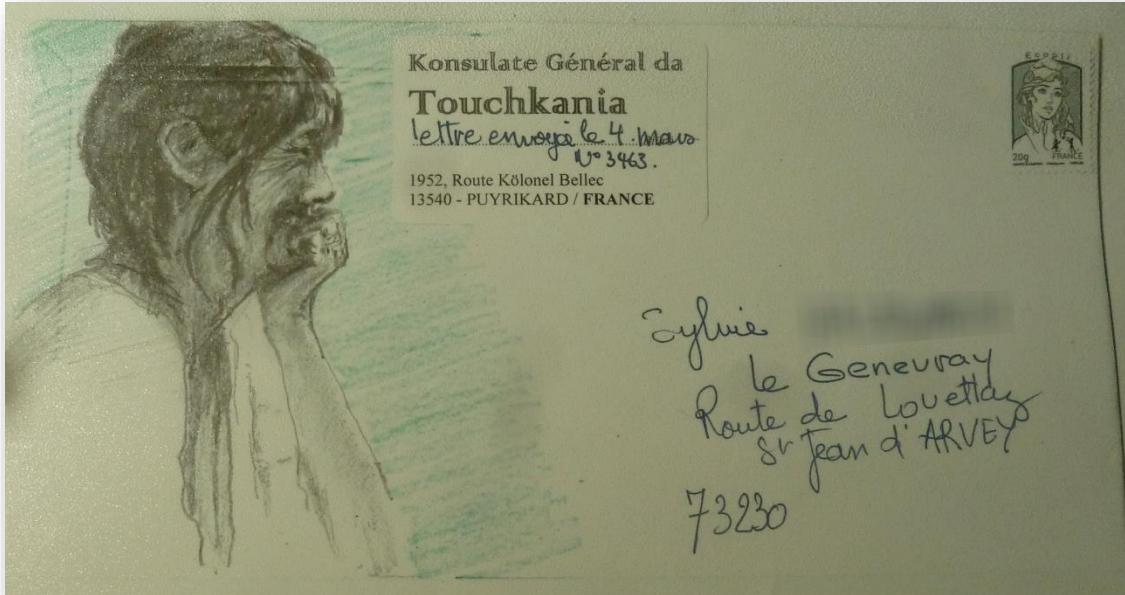 Konsulate Général da
Touchkania
lettre envoyée le 4 mars
N° 3463.
1952, Route Kölonel Bellec
13540 - PUYRIKARD / FRANCE
20g
FRANCE
Sylvie
Le Genevray
Route de Lovettaz
St Jean d'ARVEY
73230